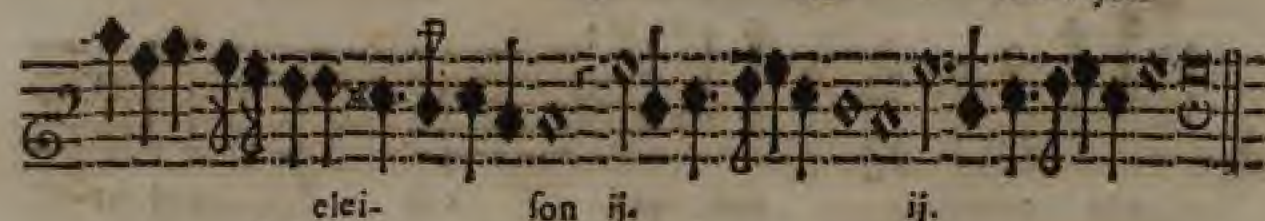 elei- ſon ij. ij.